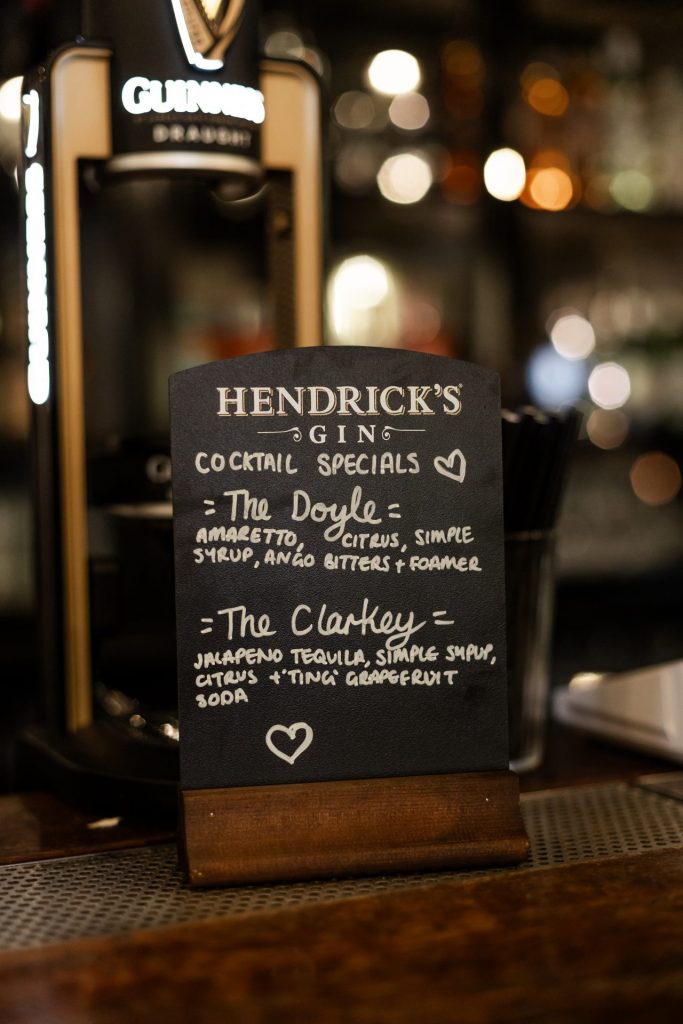 GUINNESS
DRAUGHT
HENDRICK'S
GIN
COCKTAIL SPECIALS ♡
= The Doyle =
AMARETTO, CITRUS, SIMPLE
SYRUP, ANGO BITTERS + FOAMER
= The Clarkey =
JALAPENO TEQUILA, SIMPLE SYRUP,
CITRUS + 'TING' GRAPEFRUIT
SODA
♡